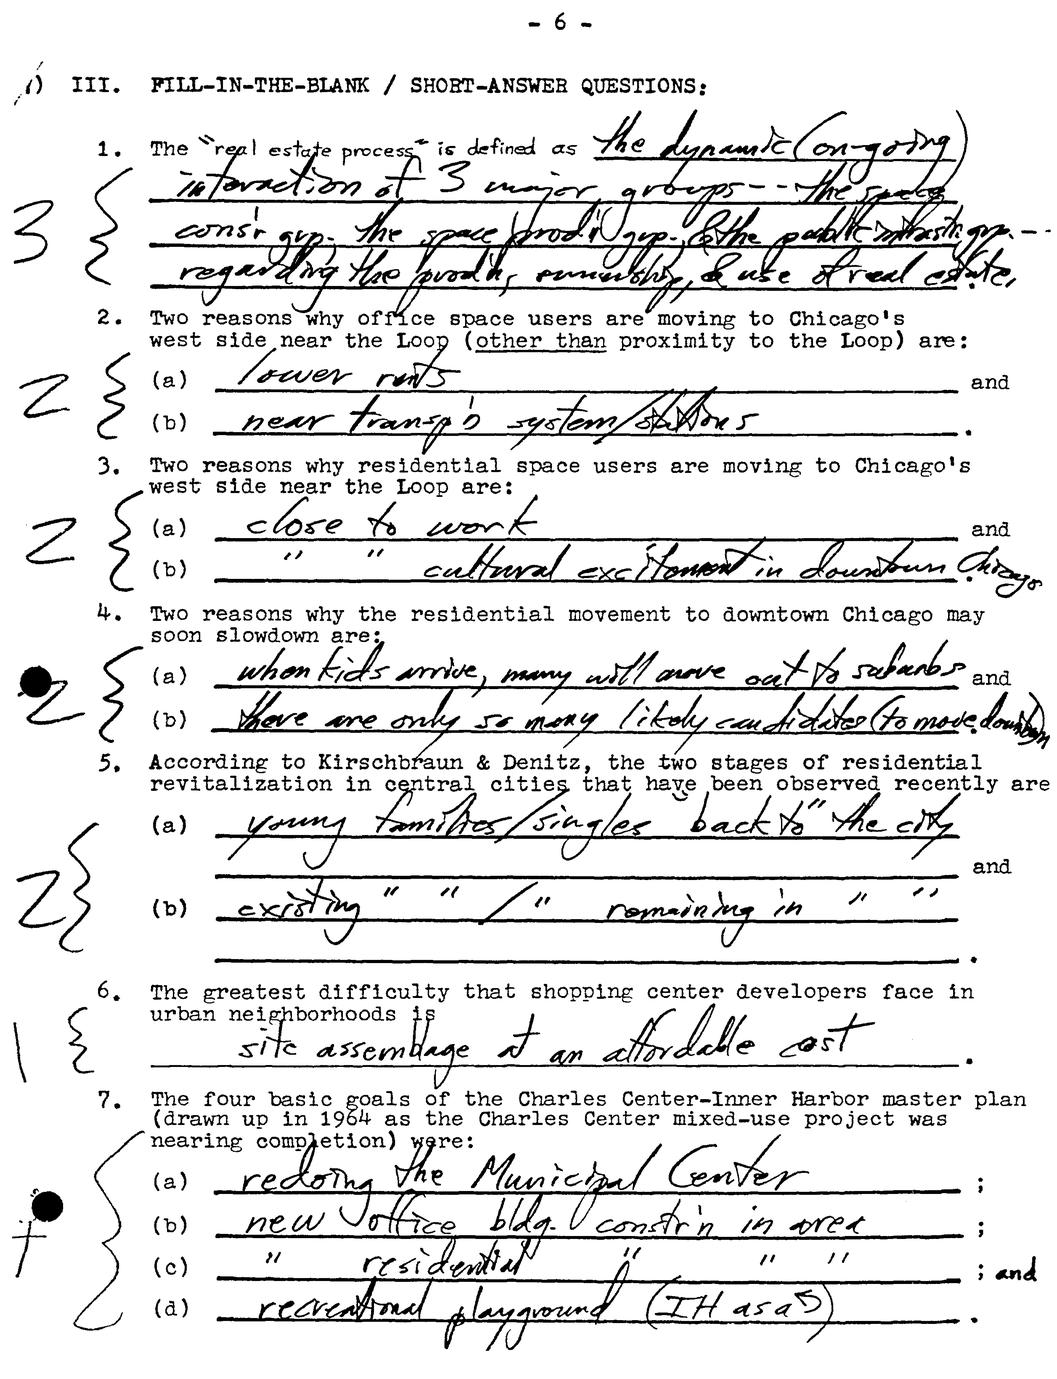 - 6 -
III. FILL-IN-THE-BLANK / SHORT-ANSWER QUESTIONS:
1. The "real estate process" is defined as the dynamic (on-going)
interaction of 3 major groups -- the space
cons'r grp. the space prod'n grp., & the public infrastr. grp. --
3
regarding the prod'n, ownership, & use of real estate.
2. Two reasons why office space users are moving to Chicago's
west side near the Loop (other than proximity to the Loop) are:
2 (a) lower rents and
(b) near transp'n system/stations.
3. Two reasons why residential space users are moving to Chicago's
west side near the Loop are:
2 (a) close to work and
(b) " " cultural excitement in downtown Chicago.
4. Two reasons why the residential movement to downtown Chicago may
soon slowdown are:
2 (a) when kids arrive, many will move out to suburbs and
(b) there are only so many likely candidates (to move downtown).
5. According to Kirschbraun & Denitz, the two stages of residential
revitalization in central cities that have been observed recently are
(a) young families/singles "back to" the city
and
2 (b) existing " " / " remaining in " "
.
6. The greatest difficulty that shopping center developers face in
urban neighborhoods is
1 site assemblage at an affordable cost.
7. The four basic goals of the Charles Center-Inner Harbor master plan
(drawn up in 1964 as the Charles Center mixed-use project was
nearing completion) were:
(a) redoing the Municipal Center ;
(b) new office bldg. constr'n in area ;
(c) " residential " " " ; and
(d) recreational playground (IH as a).